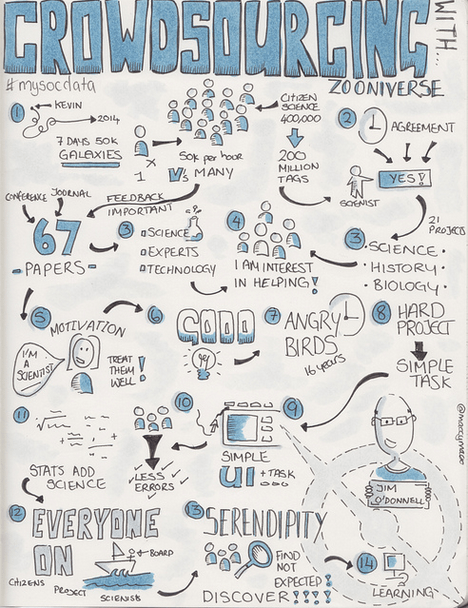 CROWDSOURCING
WITH...
ZOONIVERSE
#mysocdata
1
KEVIN
2014
7 DAYS 50K
GALAXIES
1 X
50K per hour
VS MANY
CITIZEN
SCIENCE
400,000
200
MILLION
TAGS
2
AGREEMENT
YES!
SCIENTIST
CONFERENCE JOURNAL
67
- PAPERS -
FEEDBACK
IMPORTANT
3
SCIENCE
EXPERTS
TECHNOLOGY
4
I AM INTEREST
IN HELPING!
21
PROJECTS
3
SCIENCE
HISTORY
BIOLOGY
5
MOTIVATION
I'M
A
SCIENTIST
TREAT
THEM
WELL!
6
GOOD
7
ANGRY
BIRDS
16 years
8
HARD
PROJECT
SIMPLE
TASK
@maccymacc
9
SIMPLE
UI + TASK
10
LESS
ERRORS
11
STATS ADD
SCIENCE
JIM
O'DONNELL
12
EVERYONE
ON
BOARD
CITIZENS
PROJECT
SCIENTISTS
13
SERENDIPITY
FIND
NOT
EXPECTED!
DISCOVER!!!!
14
LEARNING